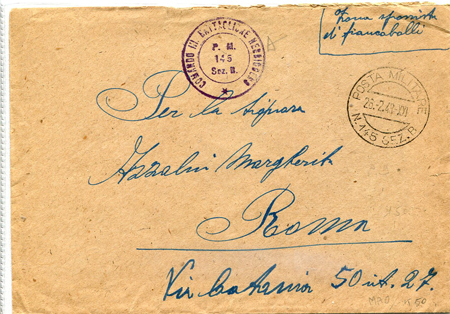 COMANDO III. BATTAGLIONE
P. M.
145
Sez. B.
Zona sprovvista
di francobolli
POSTA MILITARE
N. 145 SEZ. B
Per la Signora
Azzalini Margherita
Roma
Via Catania 50 int. 27.